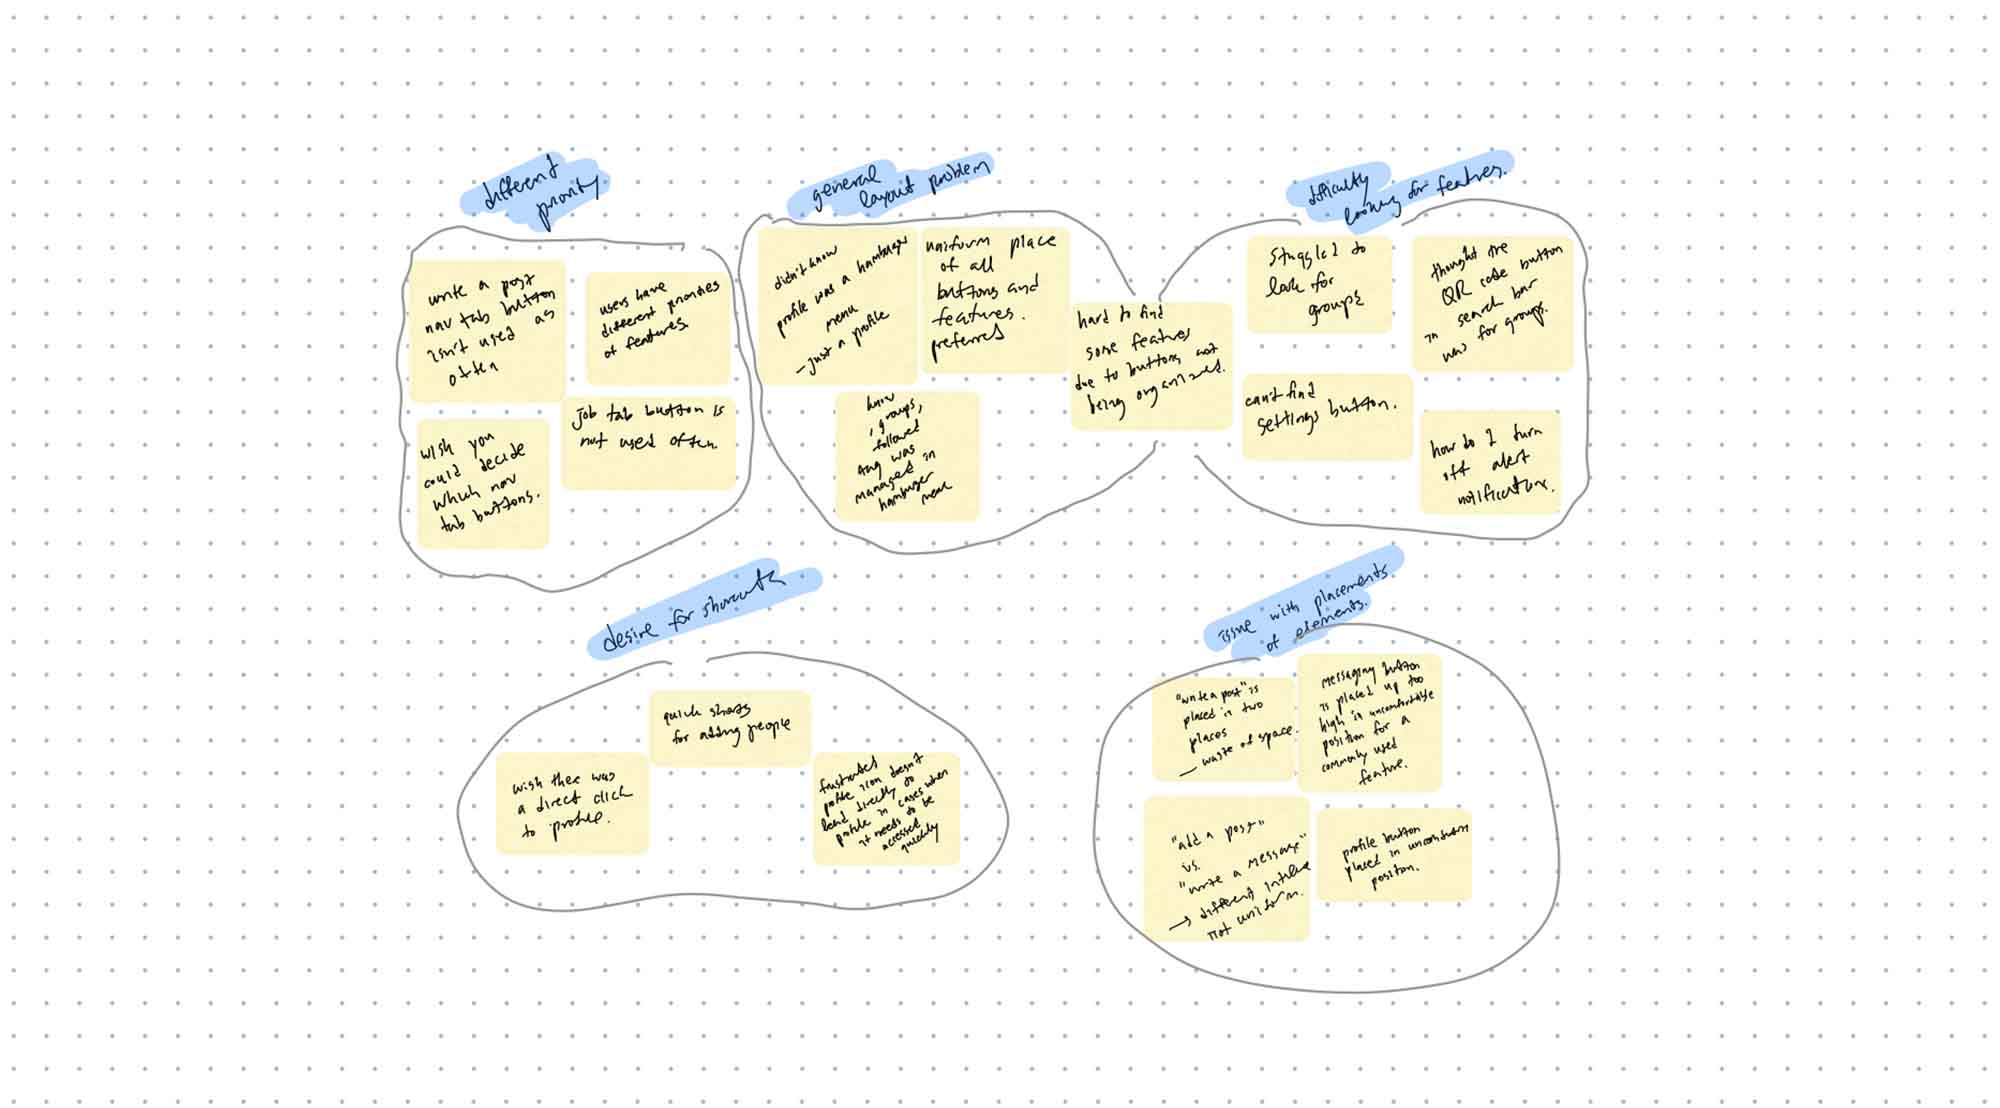 different
priority
write a post
nav tab button
isn't used as
often
users have
different priorities
of features.
wish you
could decide
which nav
tab buttons.
job tab button is
not used often.
general
layout problem
didn't know
profile was a hamburger
menu
- just a profile
uniform place
of all
buttons and
features.
preferred
know
, groups,
followed
was
managed in
hamburger
menu
hard to find
some features
due to buttons not
being organized.
difficulty
looking for features.
struggled to
look for
groups
thought the
QR code button
in search bar
was for groups.
can't find
settings button.
how do I turn
off alert
notifications.
desire for shortcuts
quick
for adding people
wish there was
a direct click
to profile.
frustrated
profile icon doesn't
lead directly to
profile in cases when
it needs to be
accessed
quickly
issue with placements
of elements.
"write a post" is
placed in two
places
— waste of space.
messaging button
is placed up too
high in uncomfortable
position for a
commonly used
feature.
"add a post"
vs.
"write a message"
→ different interface
not uniform.
profile button
placed in
position.